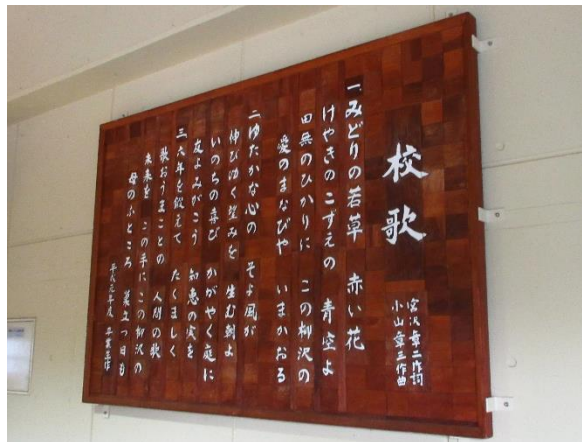 校歌
宮沢章二作詞
小山章三作曲
一、みどりの若草 赤い花
けやきのこずえの 青空よ
田無のひかりに この柳沢の
愛のまなびや いまかおる
二、ゆたかな心の そよ風が
伸びゆく望みを 生む刻よ
いのちの喜び かがやく庭に
友よみがこう 知恵の実を
三、六年を鍛えて たくましく
歌おうまことの 人間の歌
未来を この手に この柳沢の
母のふところ 巣立つ日も
平成元年度